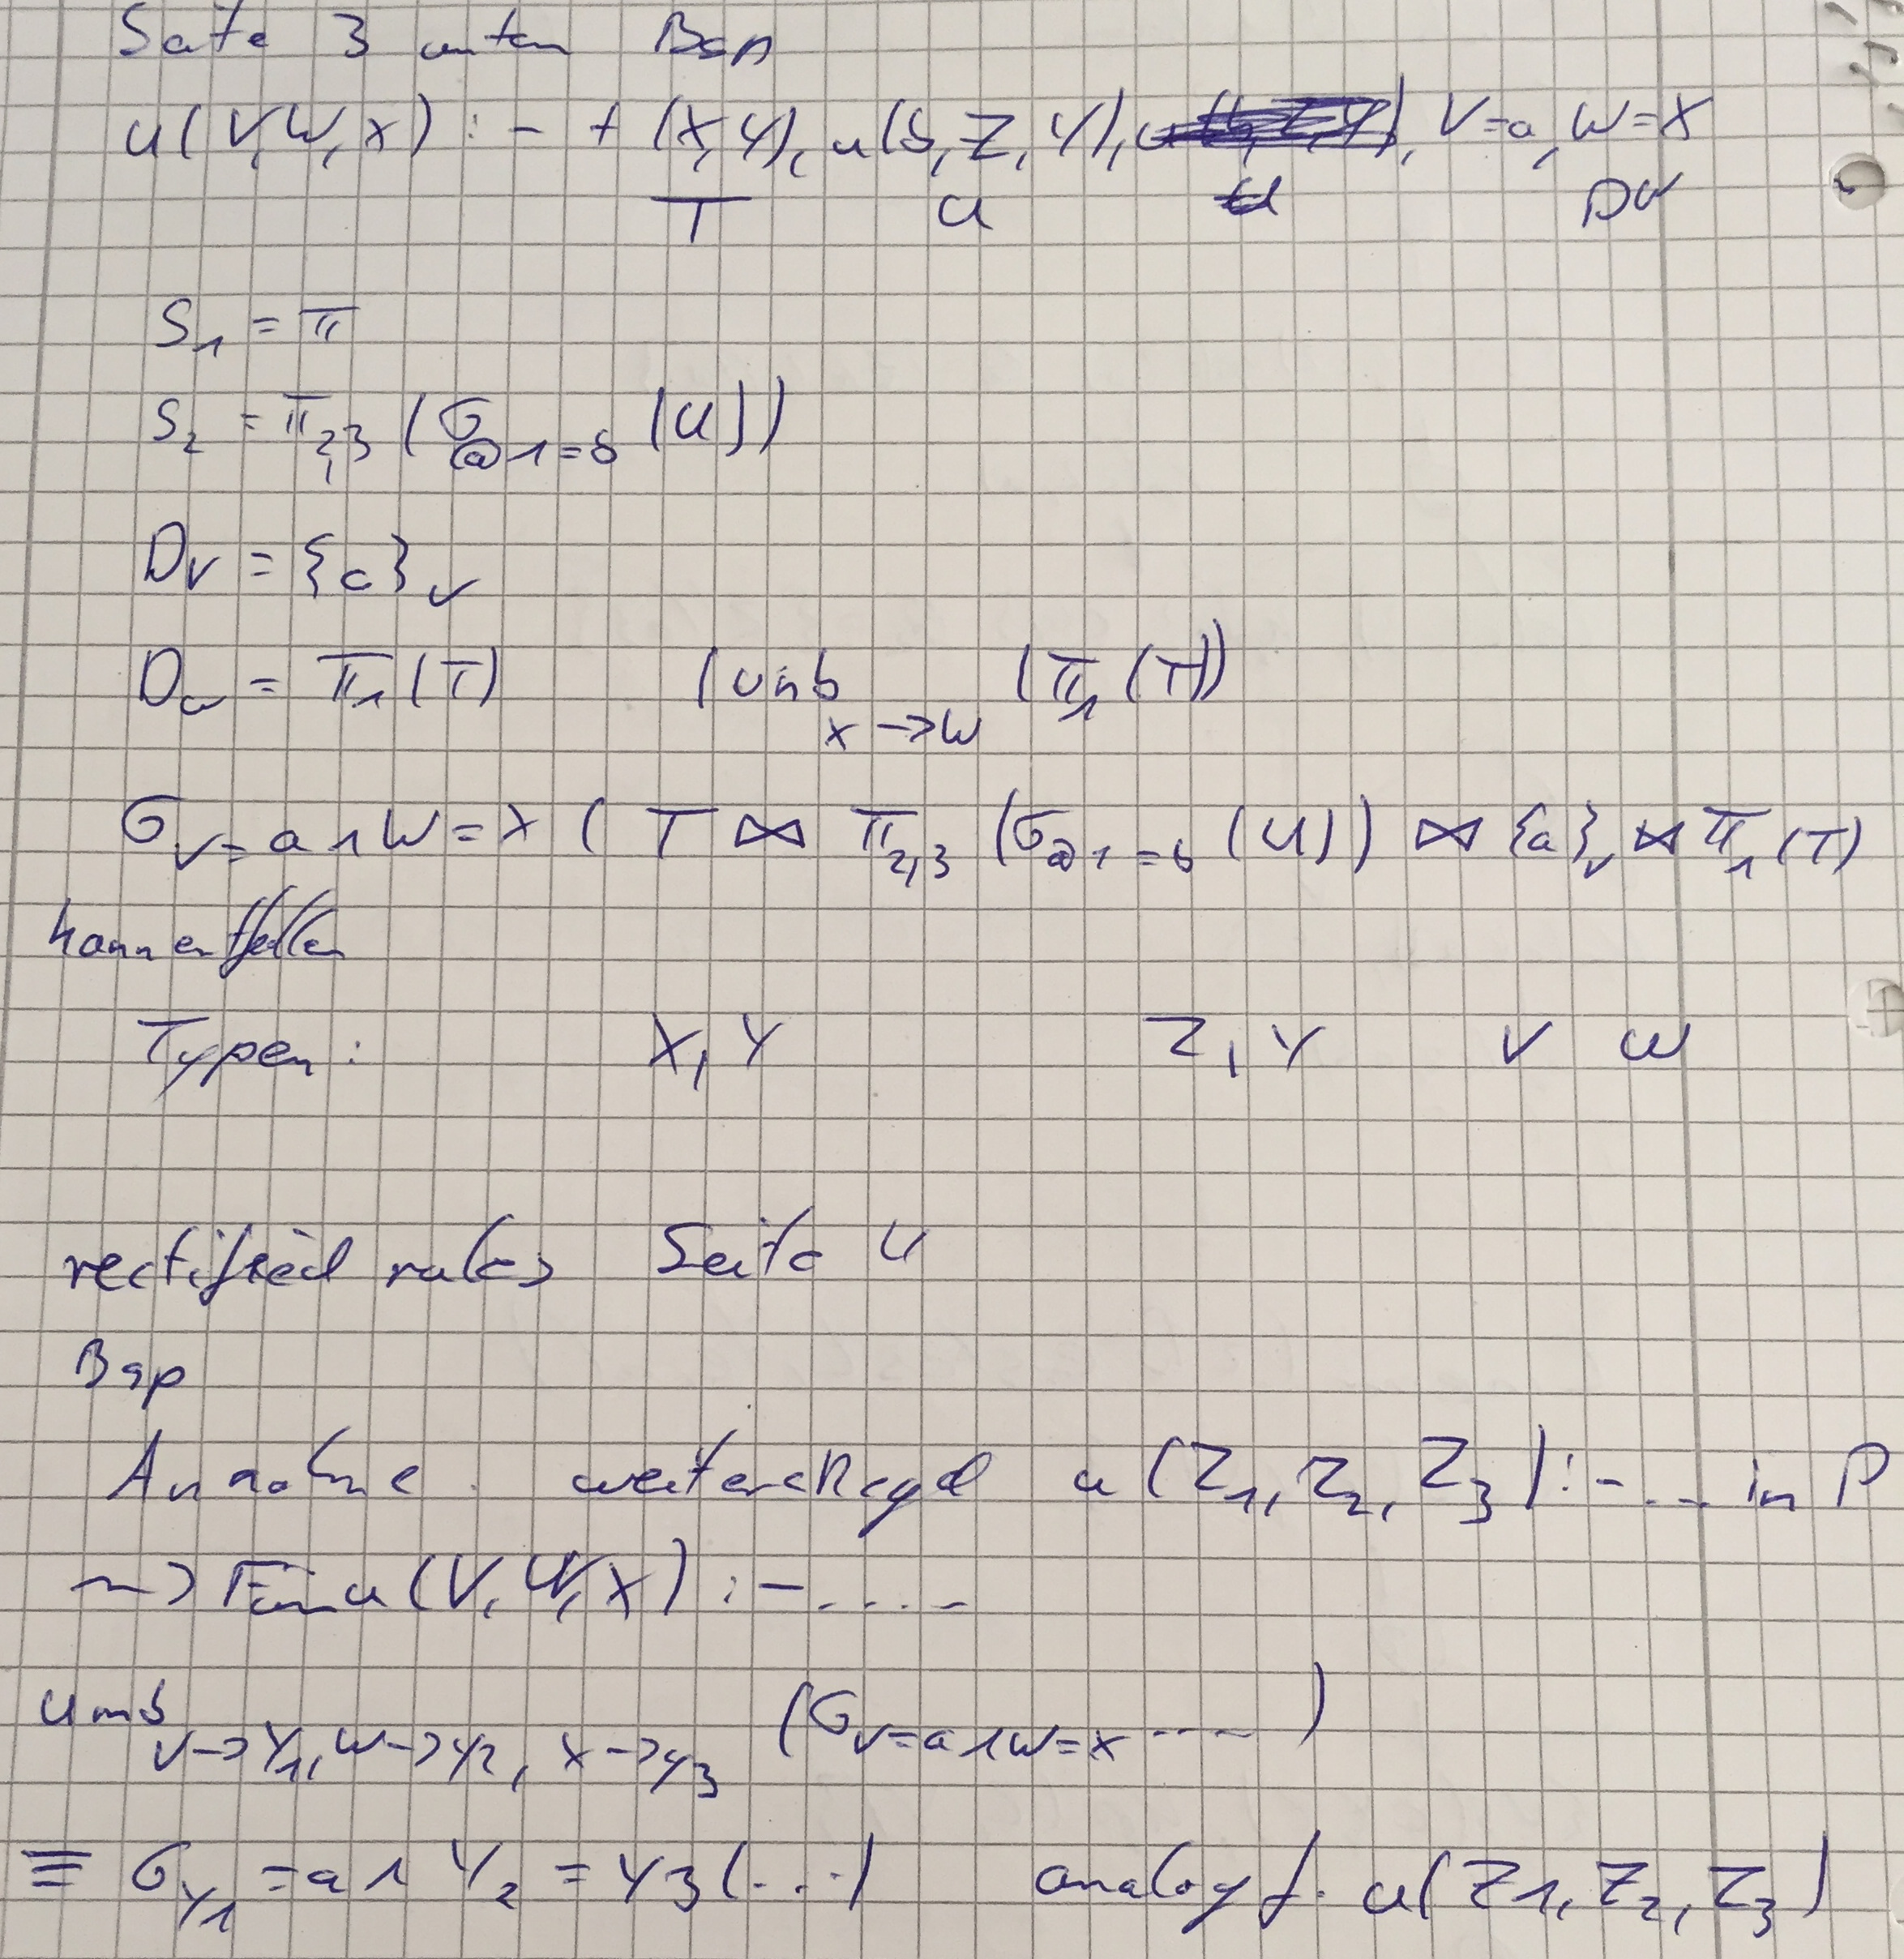 Seite 3 unten Bsp
u(V,W,X) :- t (X,Y), u(b,Z,Y), V=a, W=X
T U DW
S₁ = π
S₂ = π₂,₃ (σ@1=b (U))
D_V = {a}_V
D_W = π₁(T) (umb X→W (π₁(T))
σ V=a ∧ W=X ( T ⋈ π₂,₃ (σ@1=b (U)) ⋈ {a}_V ⋈ π₁(T)
kann entfallen
Typen: X, Y Z, Y V W
rectified rules Seite 4
Bsp
Annahme weitere Regel u(Z₁, Z₂, Z₃) :- ... in P
~> Für u(V,W,X) :- ....
umb V→Y₁, W→Y₂, X→Y₃ (σ V=a ∧ W=X ....)
≡ σ Y₁=a ∧ Y₂=Y₃(...) analog f. u(Z1, Z₂, Z₃)